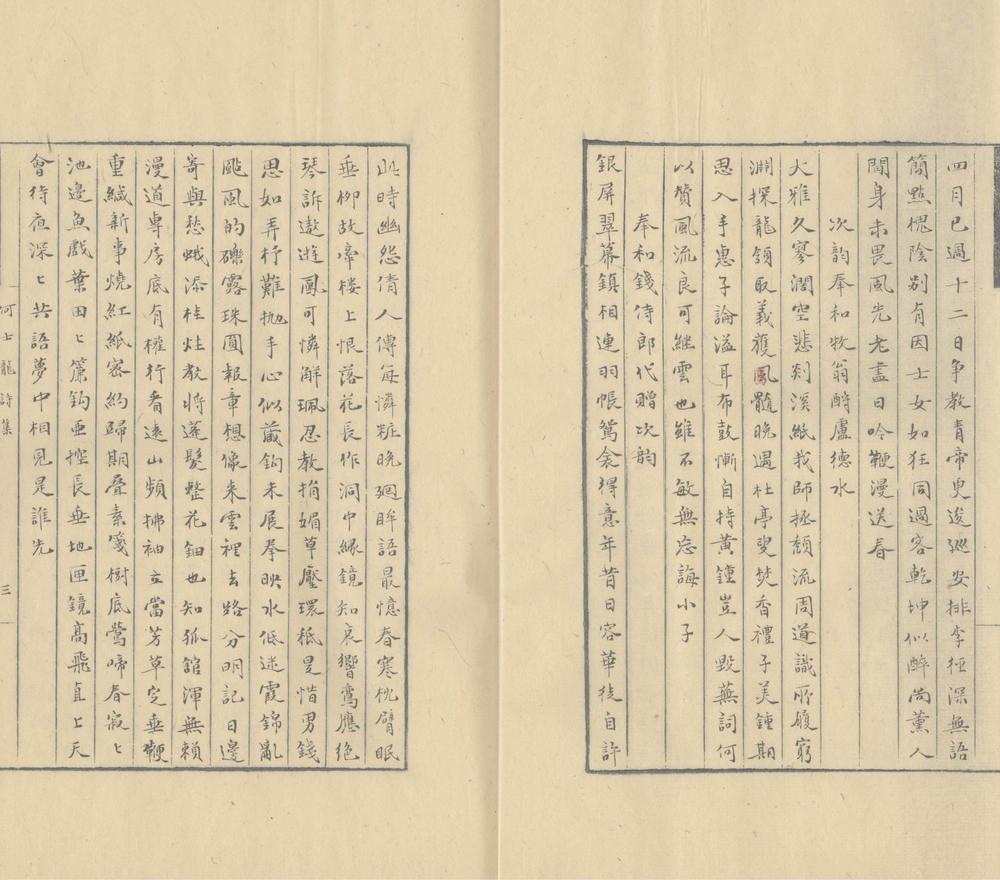 四月已過十二日争教青帝臾逡巡安排李徑深無語
簡點槐陰别有因士女如狂同過客乾坤似醉尚薰人
閒身未畏風光老盡日吟鞭漫送春
次韵奉和牧翁酧盧德水
大雅久寥濶空悲剡溪紙我師拯頹流周道識所履窮
淵探龍領取義䕶風髓晚遇杜亭叟焚香禮子美鍾期
思入手惠子論溢耳布鼓慚自持黄鍾豈人毁蕪詞何
以贊風流良可継雲也雖不敏無忘誨小子
奉和錢侍郎代贈次韵
銀屏翠幕鎮相連羽帳鴛衾得意年昔日容華徒自許
此時幽怨倩人傳每憐粧晚廻眸語最憶春寒枕臂眠
垂柳故牽楼上恨落花長作洞中緣鏡知哀響鸞應絶
琴訴遨遊鳳可憐解珮忍教捐媚草壓環秪是惜男錢
思如弄杼難抛手心似蔵鈎未展拳映水低迷霞錦亂
颭風的礫露珠圓報章想像来雲裡去路分明記日邉
寄與愁蛾添桂炷教将蓬髮整花鈿也知狐舘渾無賴
漫道專房底有權行看遠山頻拂袖立當芳草定垂鞭
重緘新事燒紅紙密約歸期疊素箋樹底鶯啼春寂ヒ
池邉魚戲葉田ヒ簾鈎亜控長垂地匣鏡髙飛直上天
會待夜深ヒ共語夢中相見是誰先
何士龍詩集
三